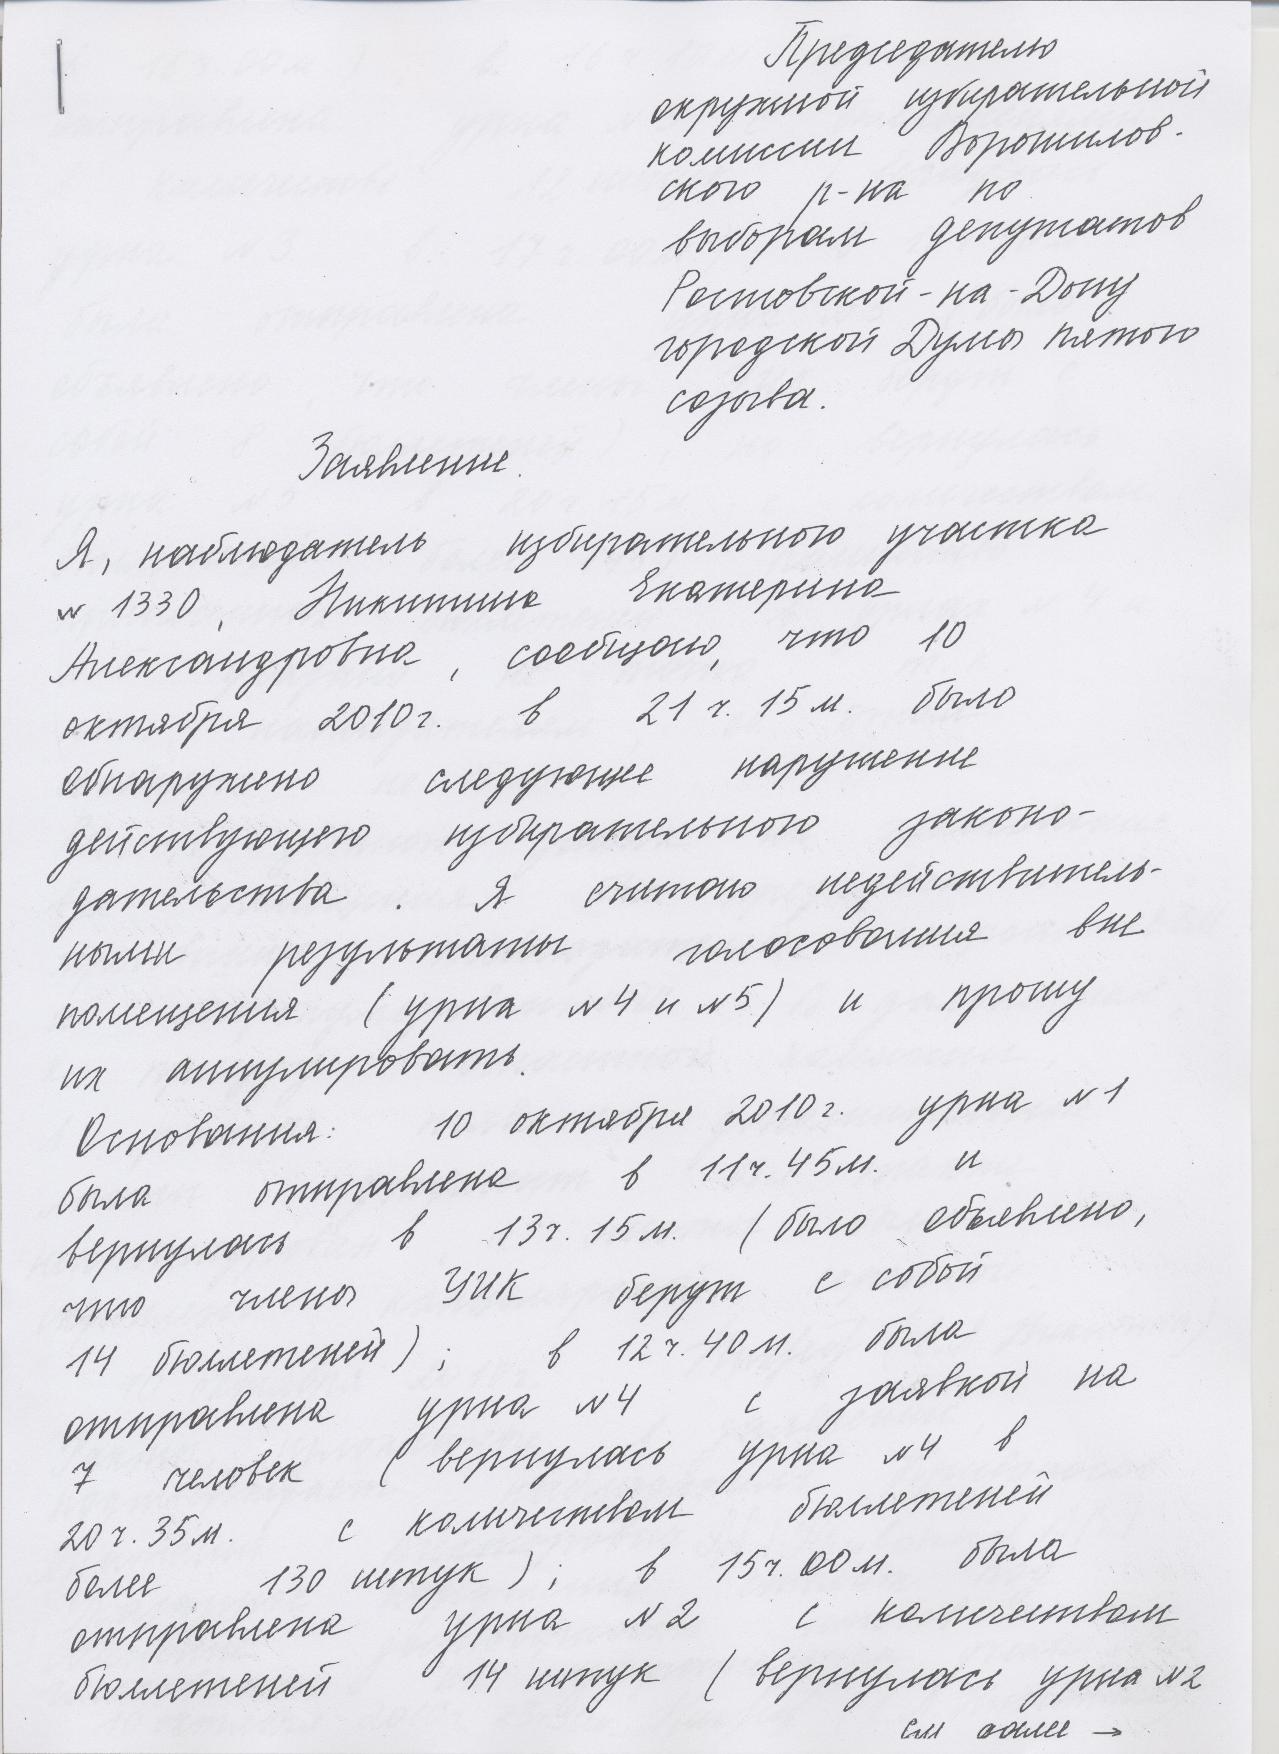 Председателю
окружной избирательной
комиссии Ворошилов-
ского р-на по
выборам депутатов
Ростовской-на-Дону
городской Думы пятого
созыва.
Заявление.
Я, наблюдатель избирательного участка
№ 1330, Никитина Екатерина
Александровна, сообщаю, что 10
октября 2010г. в 21 ч. 15 м. было
обнаружено следующее нарушение
действующего избирательного законо-
дательства. Я считаю недействитель-
ными результаты голосования вне
помещения (урна №4 и №5) и прошу
их аннулировать.
Основания: 10 октября 2010г. урна №1
была отправлена в 11ч. 45м. и
вернулась в 13ч. 15м. (было объявлено,
что члены УИК берут с собой
14 бюллетеней); в 12ч. 40м. была
отправлена урна №4 с заявкой на
7 человек (вернулась урна №4 в
20ч. 35м. с количеством бюллетеней
более 130 штук); в 15ч. 00м. была
отправлена урна №2 с количеством
бюллетеней 14 штук (вернулась урна №2
см далее →